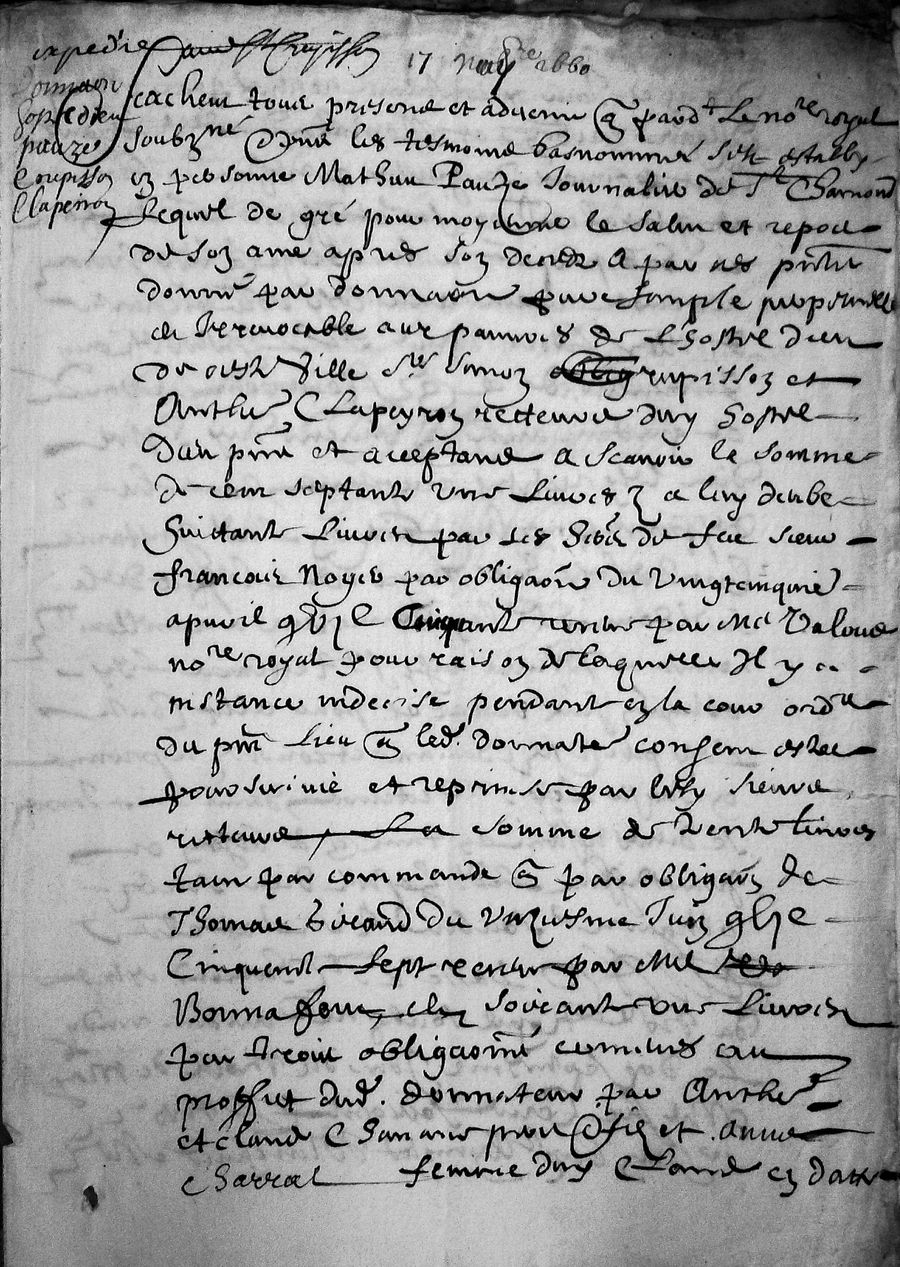 expedié
17 1660
donnaon
hospe dieu
pauze
Coupisson
Clapeiron
cachent tous presens et advenir q pardt le nore royal
soubzné les tesmoins basnommés estably
en personne Mathieu Pauze Journalier de St Chamond
lequel de gré pour moyenne le salut et repoz
de son ame apres son deces a par ces pntes
donné par donnaon pure simple perpetuelle
et Irrevocable aux pauvres de L'hostel dieu
de ceste ville Srs simon grupisson et
Anthe Clapeyron recteurs duy hostel
dieu pnt et aceptans a scavoir la somme
de cent septante une Livres a luy deube
huictante Livres par les de feu sieur
francois Noyer par obligaon du vingtcinquie
apvril Cinquante receue par Me Valous
nore royal pour raison de laquelle Il y a
instance indecise pendant en la cour ordre
du pnt Lieu q led. donnateur consent estre
poursuivie et reprinse par lesdy sieurs
recteurs, La somme de trente livres
tant par commande q par obligaon de
Thomas Girard du unziesme Juin
Cinquante sept receue par Me
Bonnafour, et soixante une Livres
par trois obligaons consenties au
proffict dud. donnateur par Anthe
et claude Chanavis pere & fils et anne
Charral femme duy Claude en datte